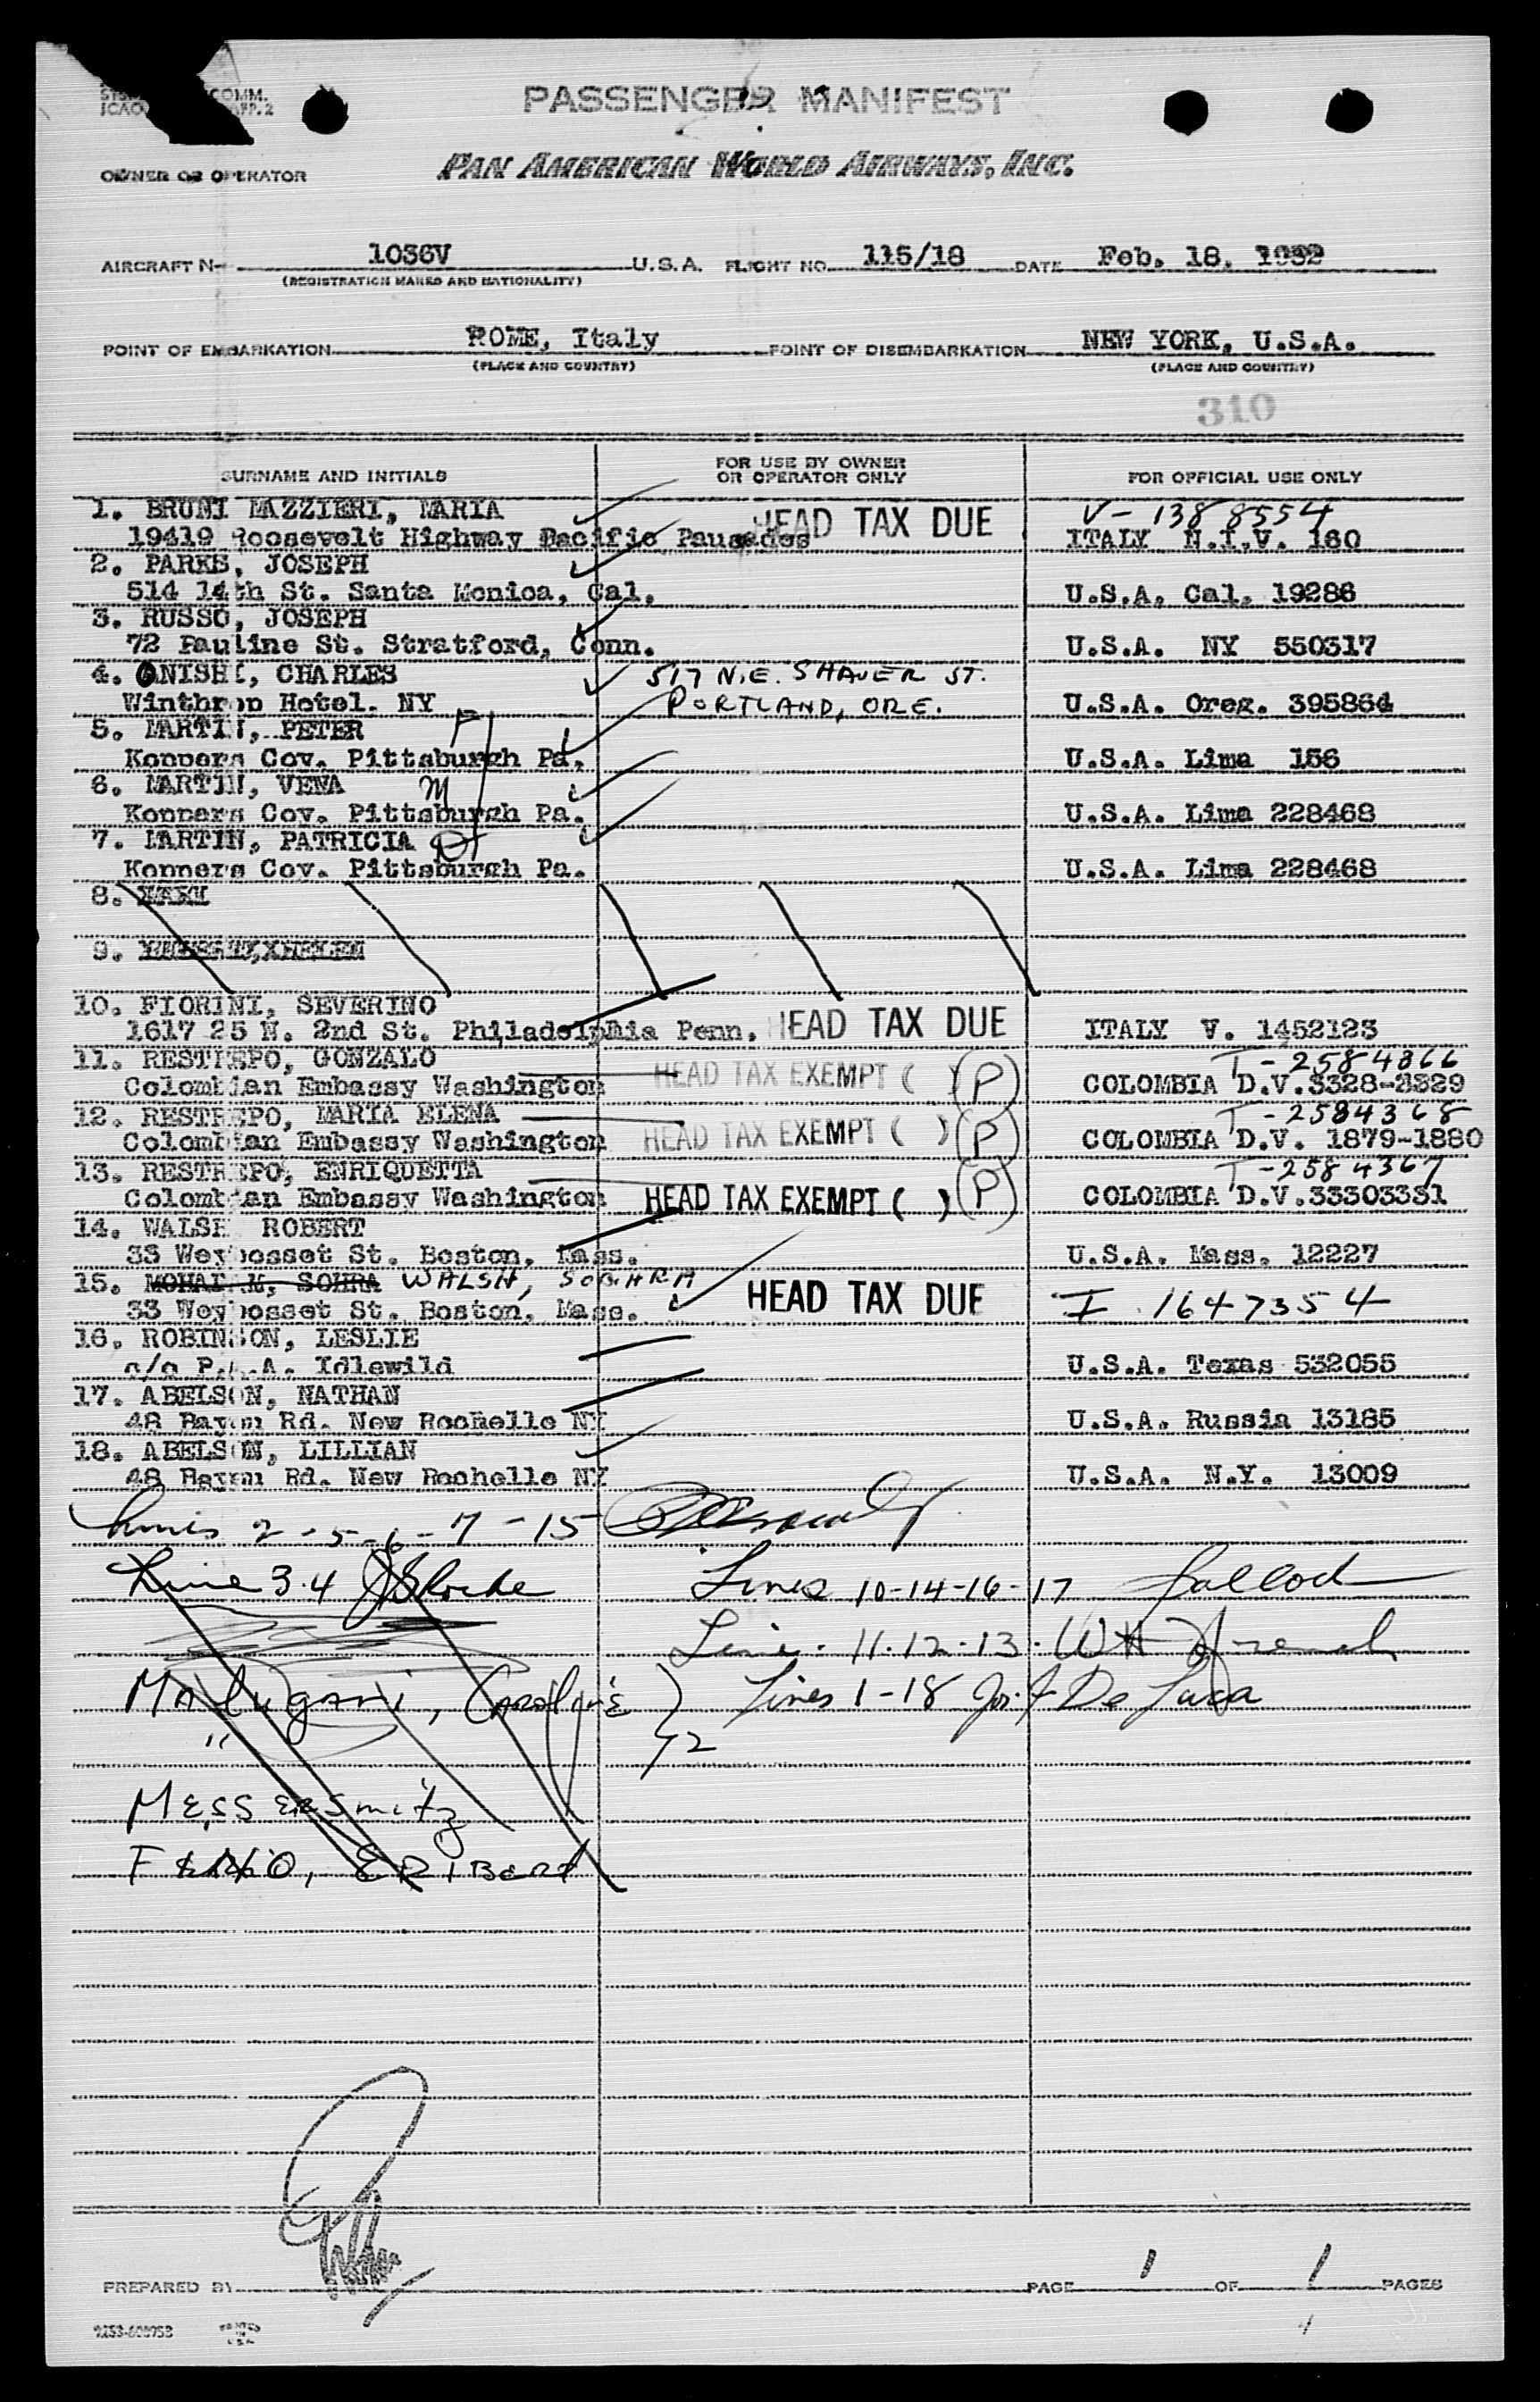 COMM.
ICAO
PASSENGER MANIFEST
OWNER OR OPERATOR PAN AMERICAN WORLD AIRWAYS, INC.
AIRCRAFT N- 1036V U.S.A. FLIGHT NO. 115/18 DATE Feb. 18. 1952
(REGISTRATION MARKS AND NATIONALITY)
POINT OF EMBARKATION ROME, Italy POINT OF DISEMBARKATION NEW YORK, U.S.A.
(PLACE AND COUNTRY) (PLACE AND COUNTRY)
310
SURNAME AND INITIALS FOR USE BY OWNER OR OPERATOR ONLY FOR OFFICIAL USE ONLY
1. BRUNI MAZZIERI, MARIA HEAD TAX DUE V-1388554
19419 Roosevelt Highway Pacific ITALY N.I.V. 160
2. PARKS, JOSEPH
514 14th St. Santa Monica, Cal. U.S.A. Cal. 19286
3. RUSSO, JOSEPH
72 Pauline St. Stratford, Conn. U.S.A. NY 550317
4. ONISHI, CHARLES 517 N.E. SHAVER ST.
Winthrop Hotel. NY PORTLAND, ORE. U.S.A. Oreg. 395864
5. MARTIN, PETER F
Koppers Cov. Pittsburgh Pa. U.S.A. Lima 156
6. MARTIN, VENA M
Koppers Cov. Pittsburgh Pa. U.S.A. Lima 228468
7. MARTIN, PATRICIA D
Koppers Cov. Pittsburgh Pa. U.S.A. Lima 228468
8.
9.
10. FIORINI, SEVERINO
1617 25 N. 2nd St. Philadelphia Penn. HEAD TAX DUE ITALY V. 1452123
11. RESTREPO, GONZALO HEAD TAX EXEMPT ( ) (P) T-2584366
Colombian Embassy Washington COLOMBIA D.V.3328-3329
12. RESTREPO, MARIA ELENA HEAD TAX EXEMPT ( ) (P) T-2584368
Colombian Embassy Washington COLOMBIA D.V. 1879-1880
13. RESTREPO, ENRIQUETTA HEAD TAX EXEMPT ( ) (P) T-2584367
Colombian Embassy Washington COLOMBIA D.V.33303331
14. WALSH ROBERT
33 Weybosset St. Boston, Mass. U.S.A. Mass. 12227
15. SOHRA WALSH, HEAD TAX DUE I 1647354
33 Weybosset St. Boston, Mass.
16. ROBINSON, LESLIE
c/o P.A.A. Idlewild U.S.A. Texas 532055
17. ABELSON, NATHAN
48 Rd. New Rochelle NY U.S.A. Russia 13185
18. ABELSON, LILLIAN
48 Rd. New Rochelle NY U.S.A. N.Y. 13009
Lines 2-5-6-7-15
Line 3.4 Lines 10-14-16-17
Line. 11.12.13. WH French
Malugani, Caroline } Lines 1-18 Jos. F De Luca
" } 2
Messersmitz
Eribert
PREPARED BY PAGE 1 OF 1 PAGES
PRINTED IN U.S.A.